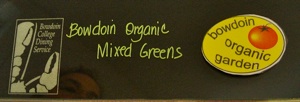 Bowdoin
College
Dining
Service
Bowdoin Organic
Mixed Greens
bowdoin
organic
garden